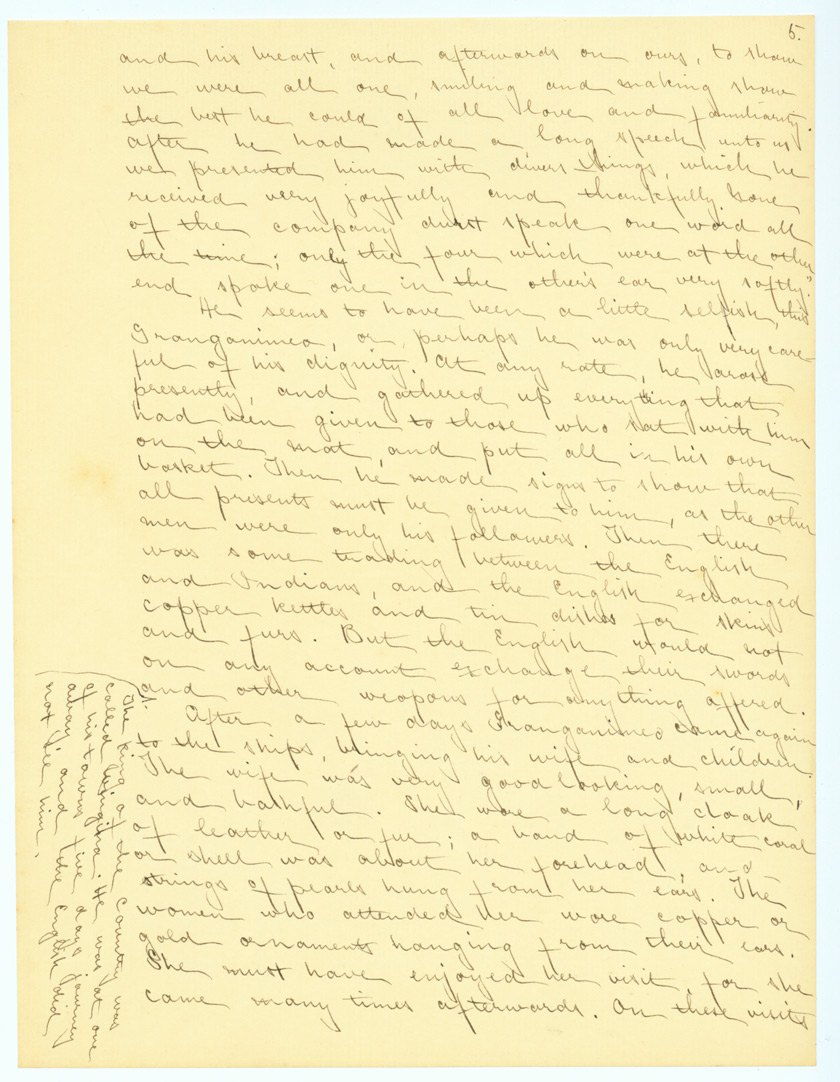 5.
and his breast, and afterwards on ours, to show
we were all one, smiling and making show
the best he could of all love and familiarity.
After he had made a long speech unto us
we presented him with divers things, which he
received very joyfully and thankfully. None
of the company durst speak one word all
the time; only the four which were at the other
end spoke one in the other's ear very softly."
He seems to have been a little selfish, this
Granganimeo, or, perhaps he was only very care-
ful of his dignity. At any rate, he arose
presently, and gathered up everything that
had been given to those who sat with him
on the mat, and put all in his own
basket. Then he made signs to show that
all presents must be given to him, as the other
men were only his followers. Then there
was some trading between the English
and Indians, and the English exchanged
copper kettles and tin dishes for skins
and furs. But the English would not
on any account exchange their swords
and other weapons for anything offered.
After a few days Granganimeo came again
to the ships, bringing his wife and children.
The wife was very good looking, small,
and bashful. She wore a long cloak
of leather or fur; a band of white coral
or shell was about her forehead, and
strings of pearls hung from her ears. The
women who attended her wore copper or
gold ornaments hanging from their ears.
She must have enjoyed her visit, for she
came many times afterwards. On these visits
The king of the country was
called Wingina. He was at one
of his towns five days journey
away, and the English did
not see him.